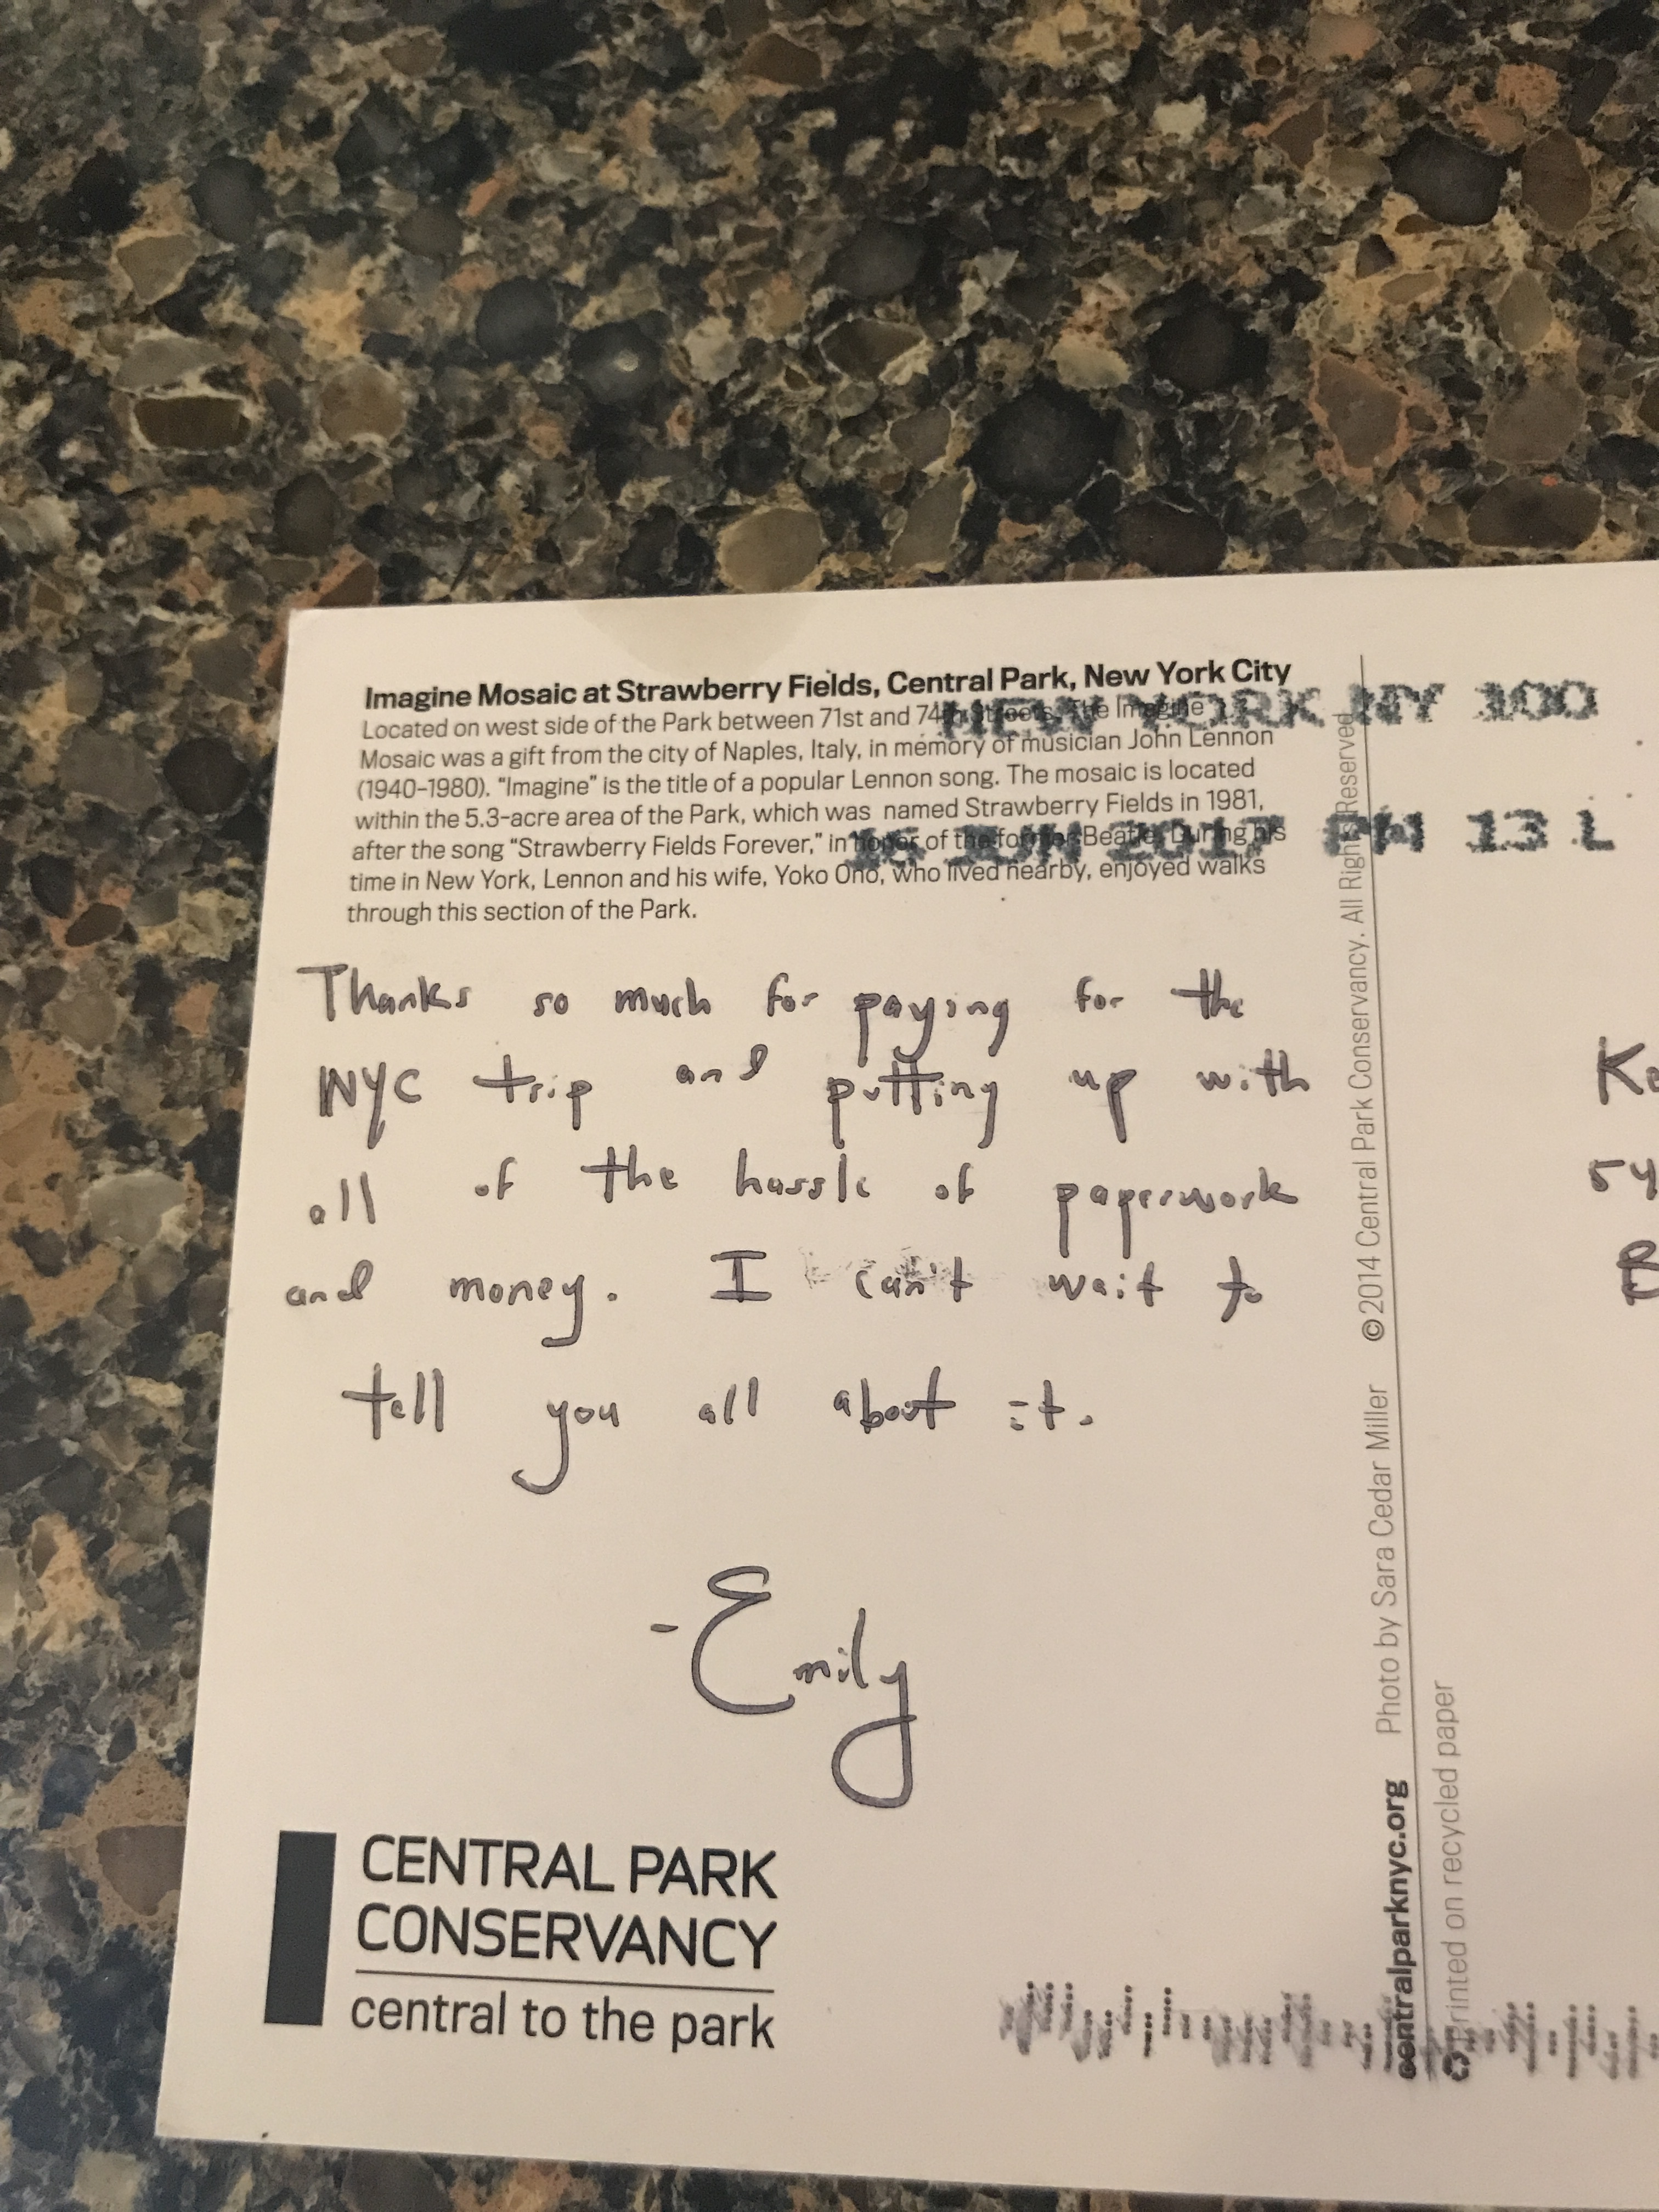 Imagine Mosaic at Strawberry Fields, Central Park, New York City
Located on west side of the Park between 71st and 74th Streets. The Imagine
Mosaic was a gift from the city of Naples, Italy, in memory of musician John Lennon
(1940-1980). “Imagine” is the title of a popular Lennon song. The mosaic is located
within the 5.3-acre area of the Park, which was named Strawberry Fields in 1981,
after the song “Strawberry Fields Forever,” in honor of the former Beatle. During his
time in New York, Lennon and his wife, Yoko Ono, who lived nearby, enjoyed walks
through this section of the Park.
NEW YORK NY 100
JUN 2017 PM 13 L
Thanks so much for paying for the
NYC trip and putting up with
all of the hassle of paperwork
and money. I can't wait to
tell you all about it.
-Emily
CENTRAL PARK
CONSERVANCY
central to the park
centralparknyc.org Photo by Sara Cedar Miller ©2014 Central Park Conservancy. All Rights Reserved
Printed on recycled paper